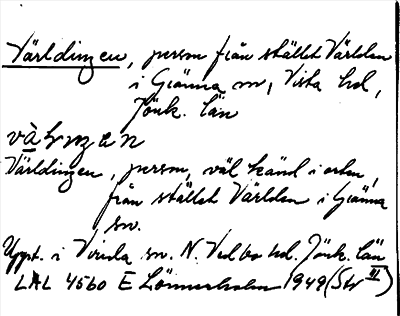 Världingen, person från stället Världen
i Gränna sn, Vista hd,
Jönk. län
Världingen, person, väl känd i orten,
från stället Världen i Gränna
sn.
Uppt. i Virserda sn. N. Vedbo hd. Jönk. län
LAL 4560 E Lönnerholm 1949 (Str III)